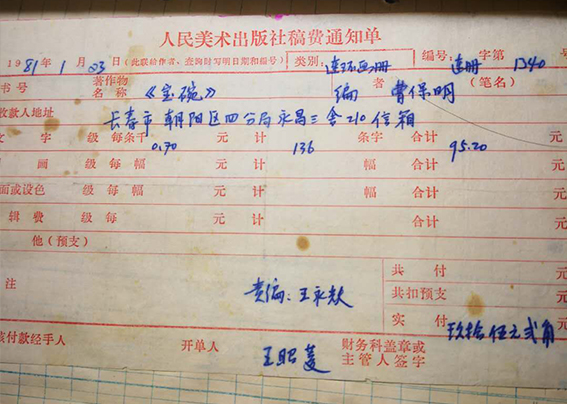 人民美术出版社稿费通知单
1981年1月23日(此联给作者、查询时写明日期和编号) 类别: 连环画册 编号: 连册字第1340
书号 著作物名称 《宝碗》 编者 曹保明 (笔名)
收款人地址 长春市朝阳区四分局永昌三舍210信箱
文字 级每条千 0.70 元计 136 条字 合计 95.20 元
画 级每幅 元计 幅 合计 元
面或设色 级每幅 元计 幅 合计 元
辑费 级每 元计 合计 元
他(预支)
注 责编:王永 共付 元
共扣预支 元
实付 玖拾伍元贰角
核付款经手人 开单人 王昭 财务科盖章或主管人签字